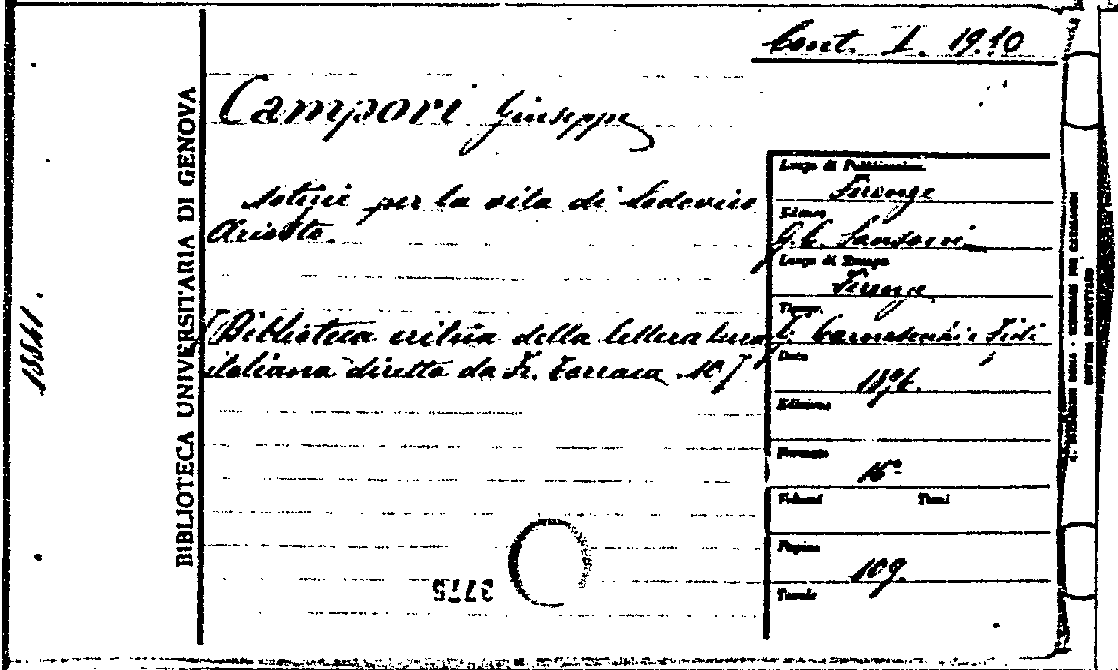 Cont. I. 19.10
Campori Giuseppe
Notizie per la vita di Lodovico
Ariosto.
[Biblioteca critica della letteratura
italiana diretta da Fr. Torraca. 10]
BIBLIOTECA UNIVERSITARIA DI GENOVA
Luogo di Pubblicazione
Firenze
Editore
G. C. Sansoni
Luogo di Stampa
Firenze
Tipogr.
G. Carnesecchi e Figli
Data
1896.
Edizione
Formato
16º
Volumi Tomi
Pagine
109.
Tavole
3775